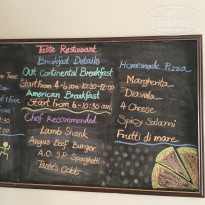 Taste Restaurant
Breakfast Details
Out Continental Breakfast
Start From 4-6 a.m
American Breakfast
Start From 6-10:30am
Chef Recommended
Lamb Shank
Angus Beef Burger
Spaghetti
Taste's Cobbs
Homemade Pizza
12:30-12:00
Margherita
Diavola
4 Cheese
Spicy Salami
Frutti di mare